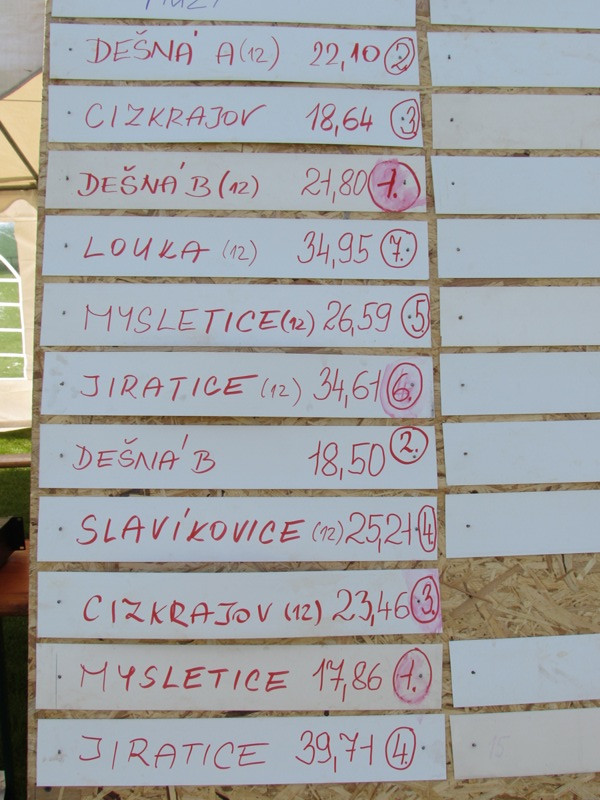 MUŽI
DEŠNÁ A (12) 22,10 2
CIZKRAJOV 18,64 3
DEŠNÁ B (12) 21,80 1.
LOUKA (12) 34,95 7.
MYSLETICE (12) 26,59 5
JIRATICE (12) 34,61 6.
DEŠNÁ B 18,50 2.
SLAVÍKOVICE (12) 25,21 4
CIZKRAJOV (12) 23,46 3
MYSLETICE 17,86 1.
JIRATICE 39,71 4